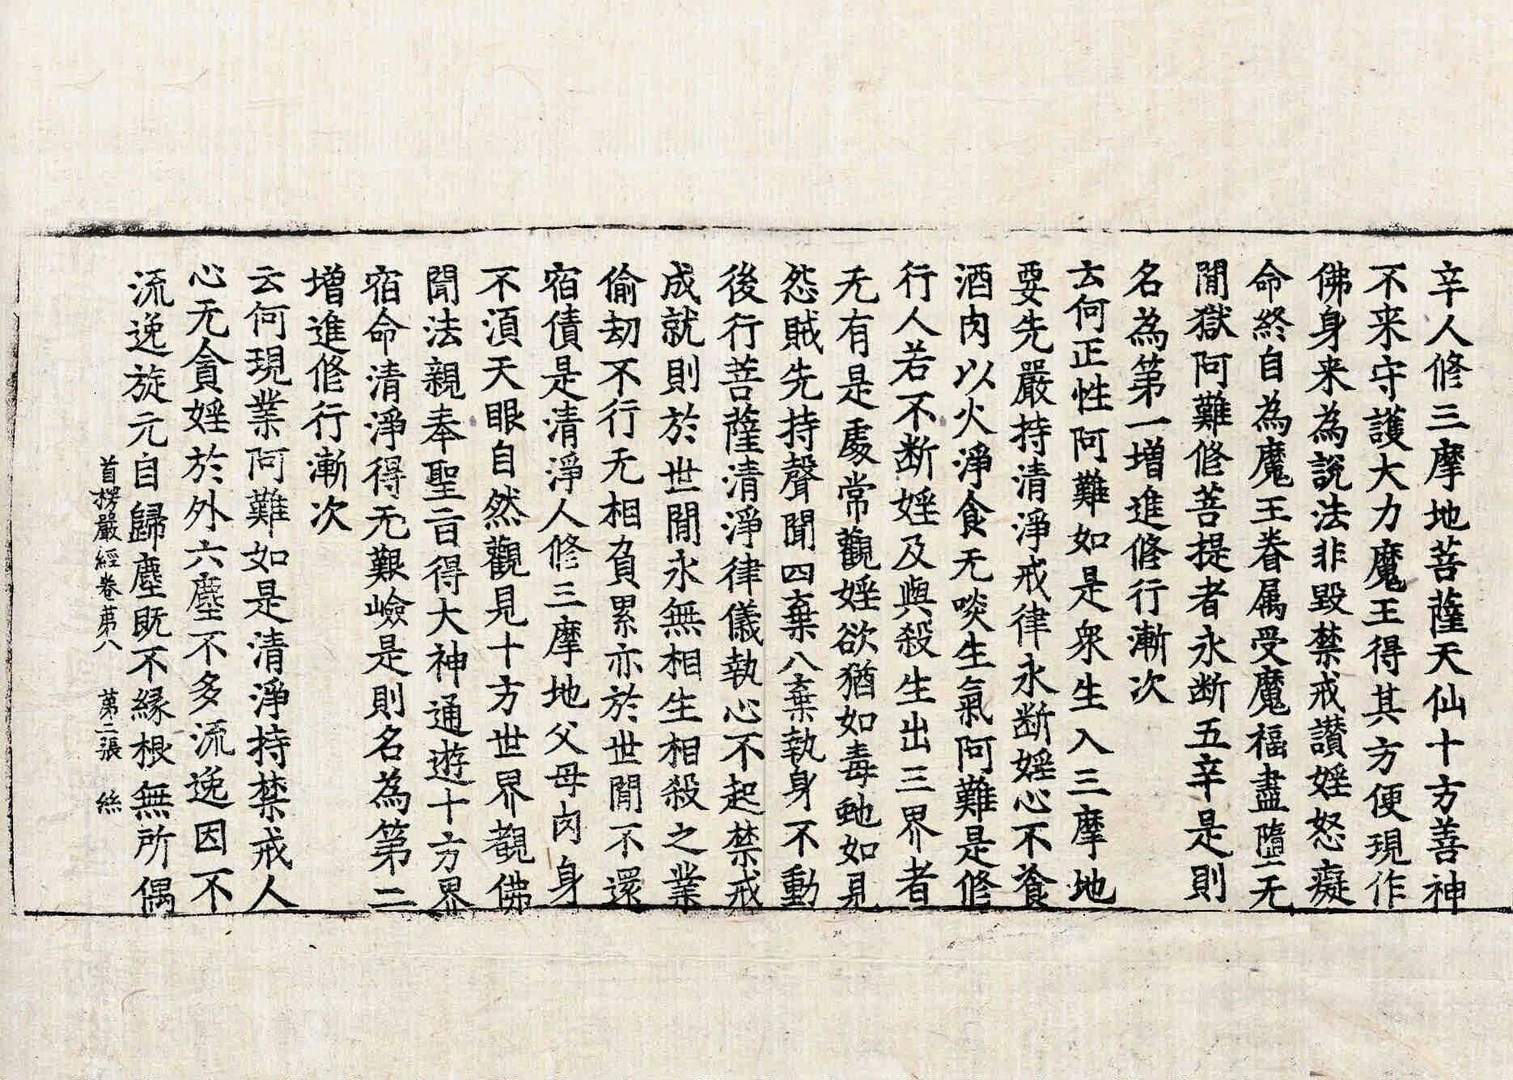 辛人修三摩地菩薩天仙十方善神
不来守護大力魔王得其方便現作
佛身来為說法非毀禁戒讃婬怒癡
命終自為魔王眷属受魔福盡墮无
閒獄阿難修菩提者永断五辛是則
名為第一增進修行漸次
云何正性阿難如是衆生入三摩地
要先嚴持清淨戒律永断婬心不飡
酒肉以火淨食无啖生氣阿難是修
行人若不断婬及與殺生出三界者
无有是處常觀婬欲猶如毒虵如見
怨賊先持聲聞四棄八棄執身不動
後行菩薩清淨律儀執心不起禁戒
成就則於世閒永無相生相殺之業
偷劫不行无相負累亦於世閒不還
宿債是清淨人修三摩地父母肉身
不湏天眼自然觀見十方世界覩佛
聞法親奉聖旨得大神通遊十方界
宿命清淨得无艱嶮是則名為第二
增進修行漸次
云何現業阿難如是清淨持禁戒人
心无貪婬於外六塵不多流逸因不
流逸旋元自歸塵既不緣根無所偶
首楞嚴經卷第八 第二張 絲